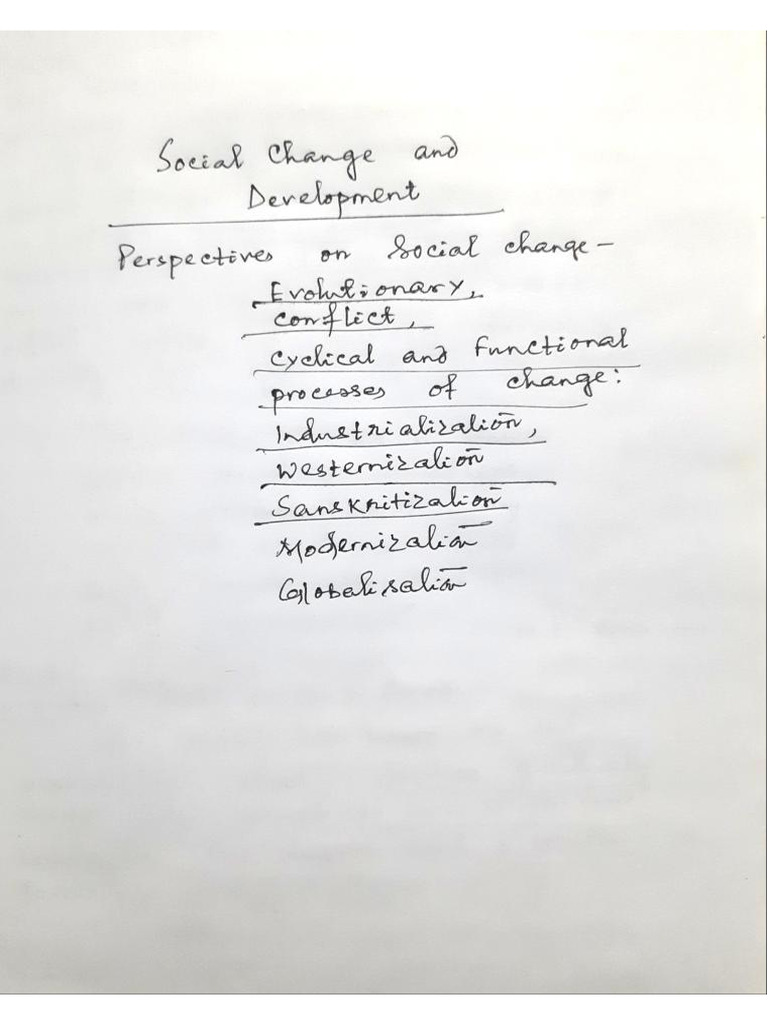 Social Change and
Development
Perspectives on Social change -
Evolutionary,
conflict,
cyclical and functional
processes of change:
Industrialization,
Westernization
Sanskritization
Modernization
Globalisation